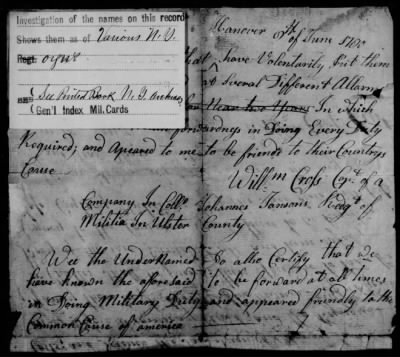 Investigation of the names on this record
Shows them as of Various N.Y.
Regt.
See Printed Book N.Y. Archives
Gen'l Index Mil. Cards
Hanover 8th
of June
that have Voluntarily put them
at Several Different Allarms
for Near two Years In which
forwardness in Doing Every Duty
Required; and Apeared to me to be friends to their Countrys
Cause
Willm Cross Capt. of a
Company In Collo. Johannes Jansons Regt. of
Militia In Ulster County
Wee the UnderNamed Do also Certify that we
have known the aforesaid to be forward at all times
in Doing Military Duty and appeared friendly to the
Common Cause of america